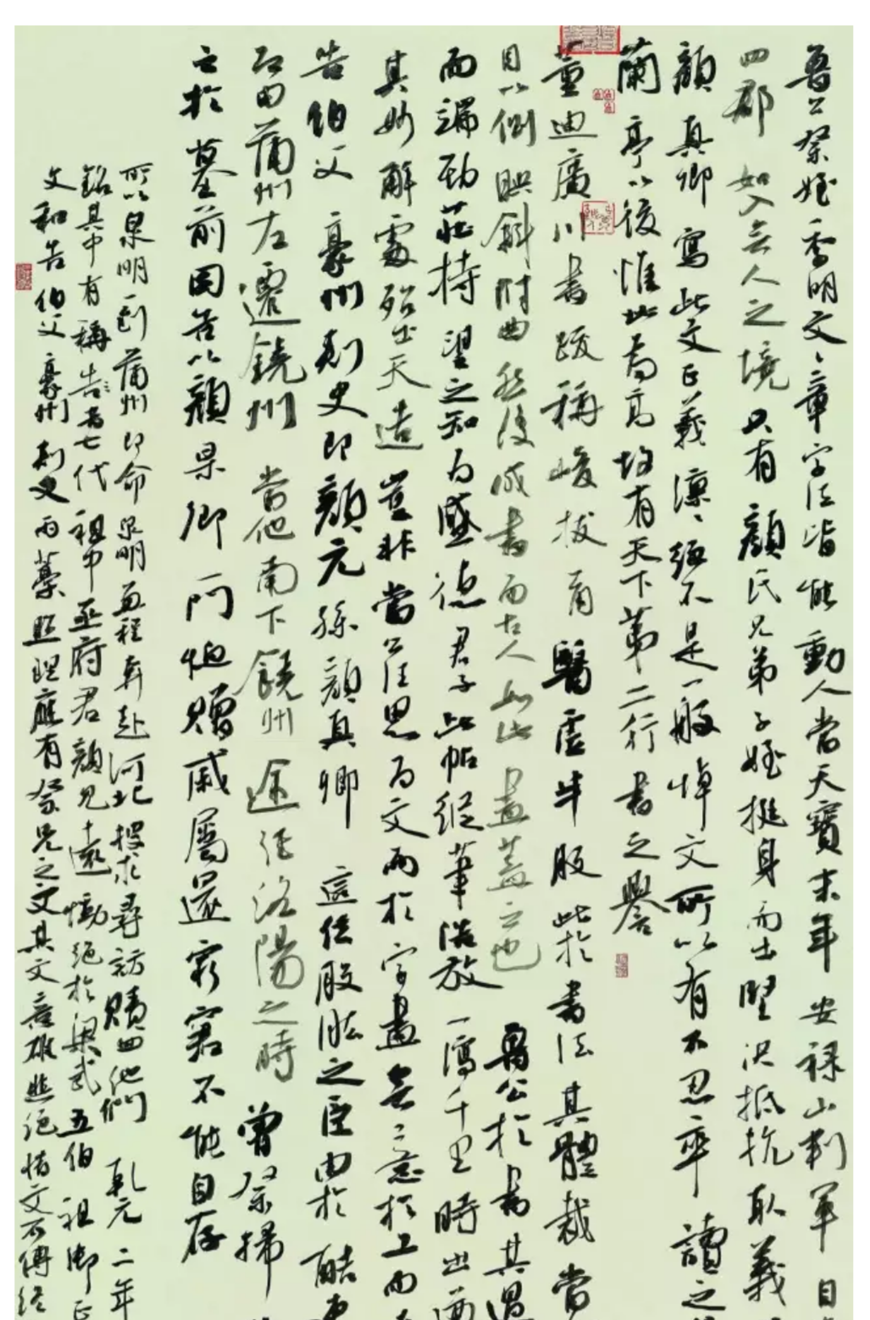 魯公祭姪季明文文章字法皆能動人當天寶末年安祿山判軍目
四郡如入無人之境只有顏氏兄弟子姪挺身而出堅決抵抗取義
顏真卿寫此文正義凛凛絕不是一般悼文所以有不忍卒讀之
蘭亭以後惟此為高故有天下第二行書之譽
董逌廣川書跋稱峻拔而醫虛牛股此於書法其體裁當
目以側映斜附曲然後成書而古人如此盡蓋之也魯公於書其過
而端勁莊持望之知為盛德君子此帖縱筆浩放一瀉千里時出
其妙解處殆出天造豈非當公注思為文而於字畫無意於工而
告伯父豪州刺史即顏元孫顏真卿這位股肱之臣由於酷
召由蒲州左遷饒州當他南下饒州途徑洛陽之時曾祭掃
亡於墓前因告以顏杲卿阿怛贈戚屬還窮窘不能自存
所以泉明一到蒲州即命泉明函程奔赴河北搜求尋訪贖回他們乾元二年
銘其中有稱告者七代祖中丞府君顏見遠慟絕於梁武五伯祖御正
文和告伯父豪州刺史兩藁照理應有祭兄之文其文意雄悲絕惜文不傳